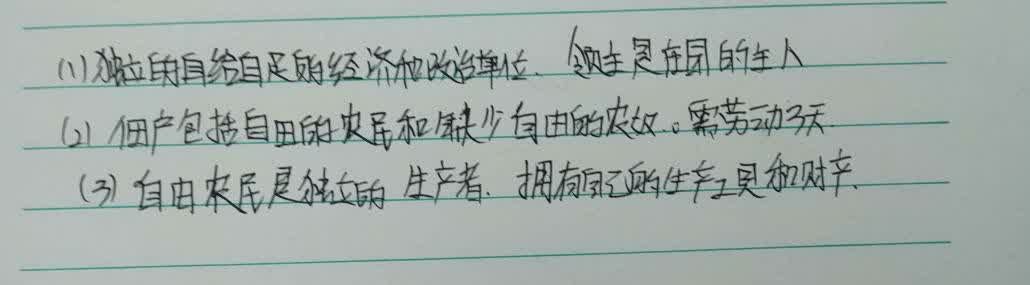 (1)独立的自给自足的经济和政治单位、领主是庄园的主人
(2)佃户包括自由的农民和缺少自由的农奴。需劳动3天.
(3)自由农民是独立的生产者.拥有自己的生产工具和财产.